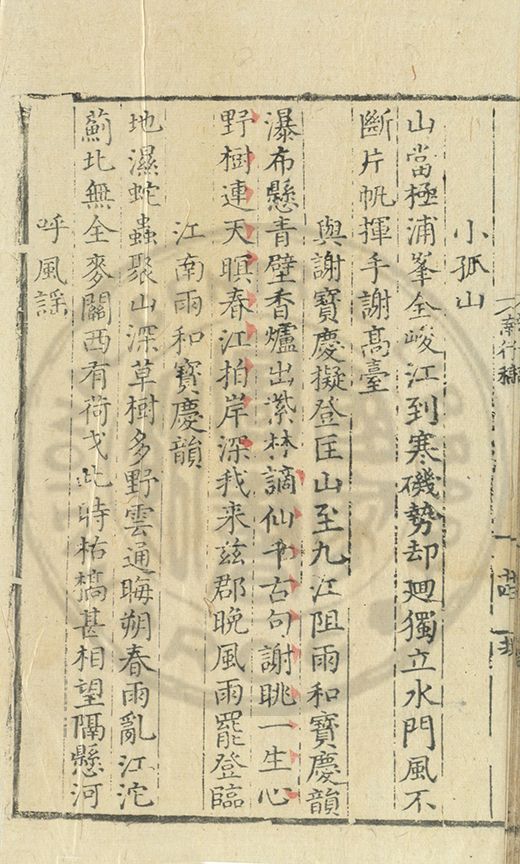 小孤山
山當極浦峯全峻江到寒磯勢却廻獨立水門風不
斷片帆揮手謝高臺
與謝寳慶擬登匡山至九江阻雨和寳慶韻
瀑布懸青壁香爐出紫林謫仙千古句謝眺一生心
野樹連天暝春江拍岸深我来兹郡晩風雨罷登臨
江南雨和寳慶韻
地濕蛇蟲聚山深草樹多野雲通晦朔春雨亂江沱
薊北無全麥關西有荷戈此時枯槁甚相望隔懸河
呼風謡